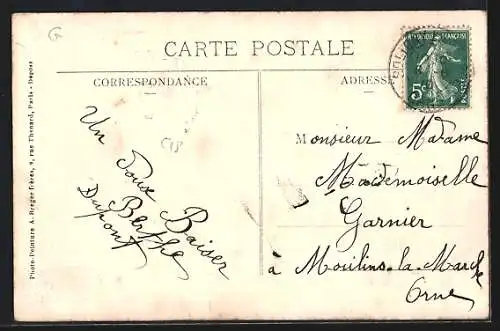 CARTE POSTALE
CORRESPONDANCE
ADRESSE
Un Doux Baiser
Berthe
Dupont
Monsieur Madame
Mademoiselle
Garnier
à Moulins-la-Marche
Orne
5c
Photo-Peinture A. Breger frères, 9, rue Thénard, Paris - Déposé